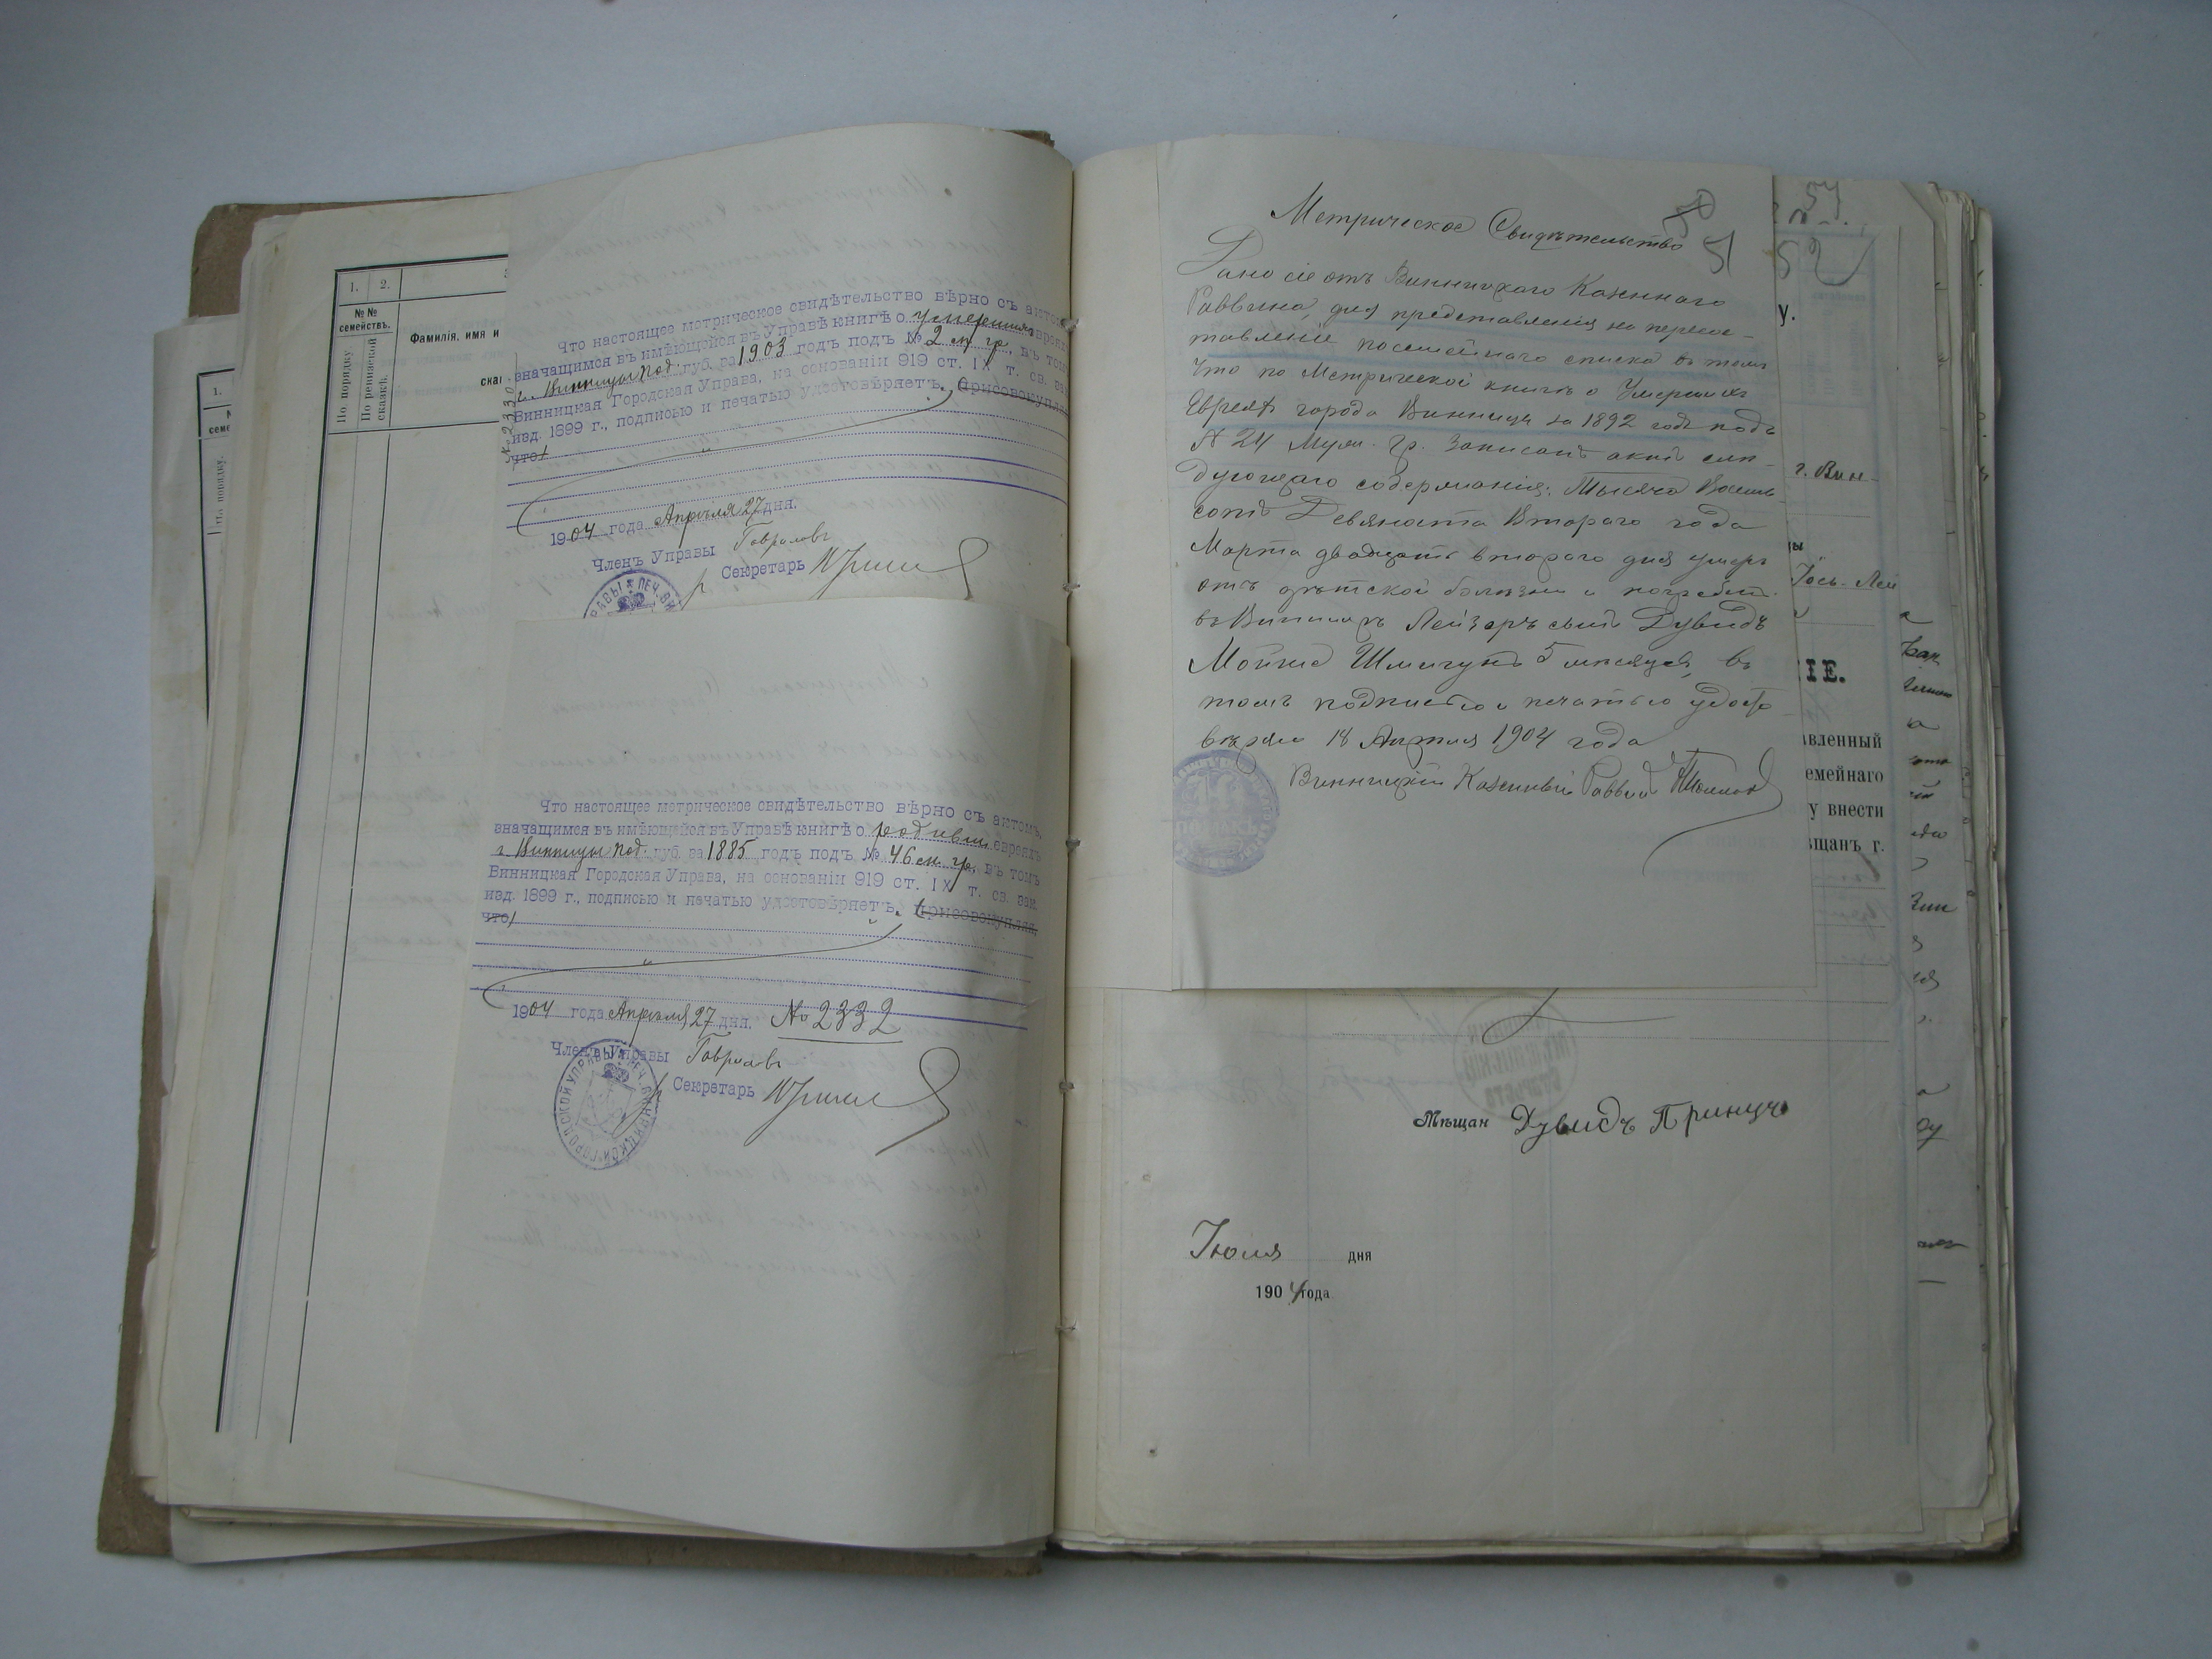 1. 2.
№№
семействъ.
Фамилія, имя и
По порядку.
По ревизской
сказкѣ.
1.
№ 2330
Что настоящее метрическое свидѣтельство вѣрно съ актомъ
значащимся въ имѣющейся въ Управѣ книгѣ о умершихъ евреяхъ
г. Винницы Под. губ. за 1903 годъ подъ № 2 м гр, въ томъ
Винницкая Городская Управа, на основаніи 919 ст. IX т. св. зак.
изд. 1899 г., подписью и печатью удостовѣряетъ. (присовокупляя,
что)
1904 года Апрѣля 27 дня.
Членъ Управы
Секретарь
Что настоящее метрическое свидѣтельство вѣрно съ актомъ,
значащимся въ имѣющейся въ Управѣ книгѣ о родивш евреяхъ
г. Винницы Под. губ. за 1885 годъ подъ № 46 м. гр., въ томъ
Винницкая Городская Управа, на основаніи 919 ст. IX т. св. зак.
изд. 1899 г., подписью и печатью удостовѣряетъ. (присовокупляя,
что)
1904 года Апрѣля 27 дня. No 2332
Членъ Управы
Секретарь
50
51
Метрическое Свидѣтельство
Дано сіе отъ Винницкаго Казеннаго
Раввина, для представленія на пересос-
тавленіе посемейнаго списка въ томъ
Что по Метрической книгѣ о Умершихъ
Евреяхъ города Винницы за 1892 годъ подъ
№ 24 Муж. гр. Записанъ актъ слѣ-
дующаго содержанія: Тысяча Восемь-
сотъ Девяноста Втораго года
Марта двадцать втораго дня умеръ
отъ дѣтской болѣзни и погребенъ
въ Винницѣ Лейзеръ сынъ Дувидъ
Мойше Шмигунъ 5 мѣсяцевъ, въ
томъ подписью и печатью удосто-
вѣряю 18 Апрѣля 1904 года
Винницкій Казенный Раввинъ
52
у.
г. Вин-
Іось-Лей
ІЕ.
авленный
емейнаго
у внести
щанъ г.
Мѣщан Дувидъ Принцъ
Іюля дня
1904 года